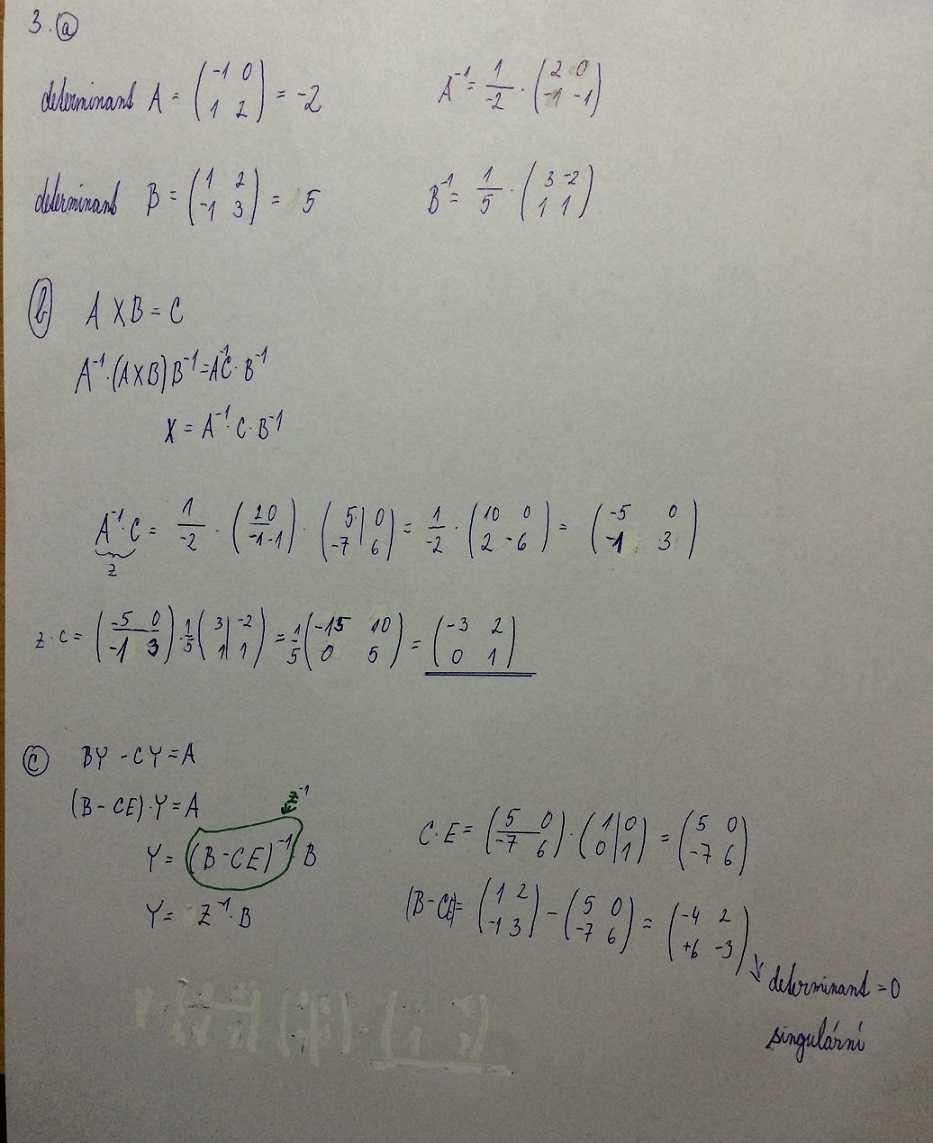 3. a
determinant A = (-1 0 / 1 2) = -2
A⁻¹ = 1/-2 · (2 0 / -1 -1)
determinant B = (1 2 / -1 3) = 5
B⁻¹ = 1/5 · (3 -2 / 1 1)
b A X B = C
A⁻¹·(A X B) B⁻¹ = A⁻¹C · B⁻¹
X = A⁻¹ · C · B⁻¹
A⁻¹·C = 1/-2 · (2 0 / -1 -1) · (5 0 / -7 6) = 1/-2 · (10 0 / 2 -6) = (-5 0 / -1 3)
z
z · C = (-5 0 / -1 3) · 1/5 (3 -2 / 1 1) = 1/5 (-15 10 / 0 5) = (-3 2 / 0 1)
c BY - CY = A
(B - CE) · Y = A
z⁻¹
Y = (B - CE)⁻¹ B
Y = Z⁻¹ · B
C·E = (5 0 / -7 6) · (1 0 / 0 1) = (5 0 / -7 6)
(B - CE) = (1 2 / -1 3) - (5 0 / -7 6) = (-4 2 / +6 -3)
determinant = 0
singulární